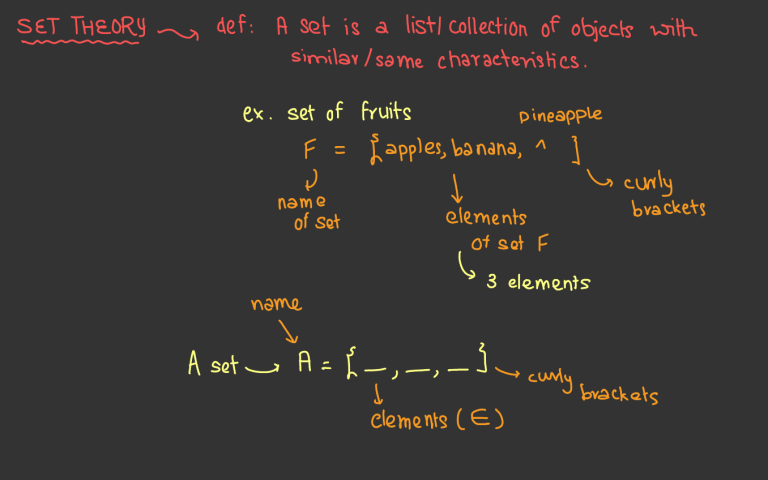 SET THEORY def: A set is a list/collection of objects with
similar/same characteristics.
ex. set of fruits
pineapple
F = {apples, banana, ^ }
name
of set
elements
of set F
curly
brackets
3 elements
name
A set → A = {_, _, _}
curly
brackets
elements (∈)